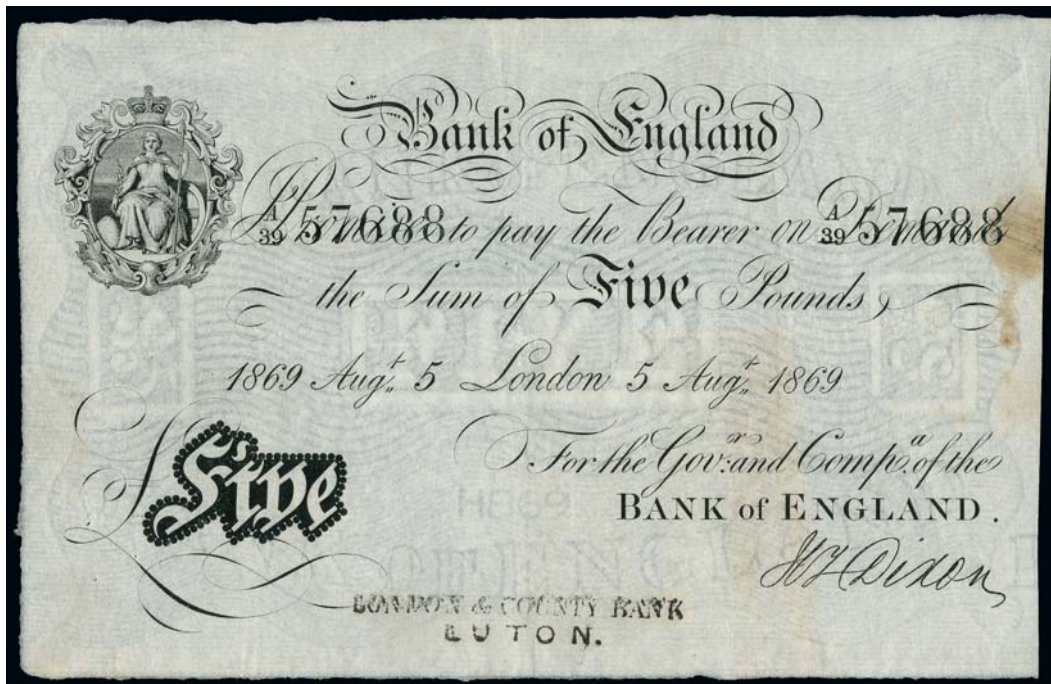 Bank of England
A/39 57688 Promise to pay the Bearer on Demand A/39 57688
the Sum of Five Pounds,
1869 Augt. 5 London 5 Augt. 1869
For the Govr: and Compa. of the
Five
BANK of ENGLAND.
Dixon
LONDON & COUNTY BANK
LUTON.